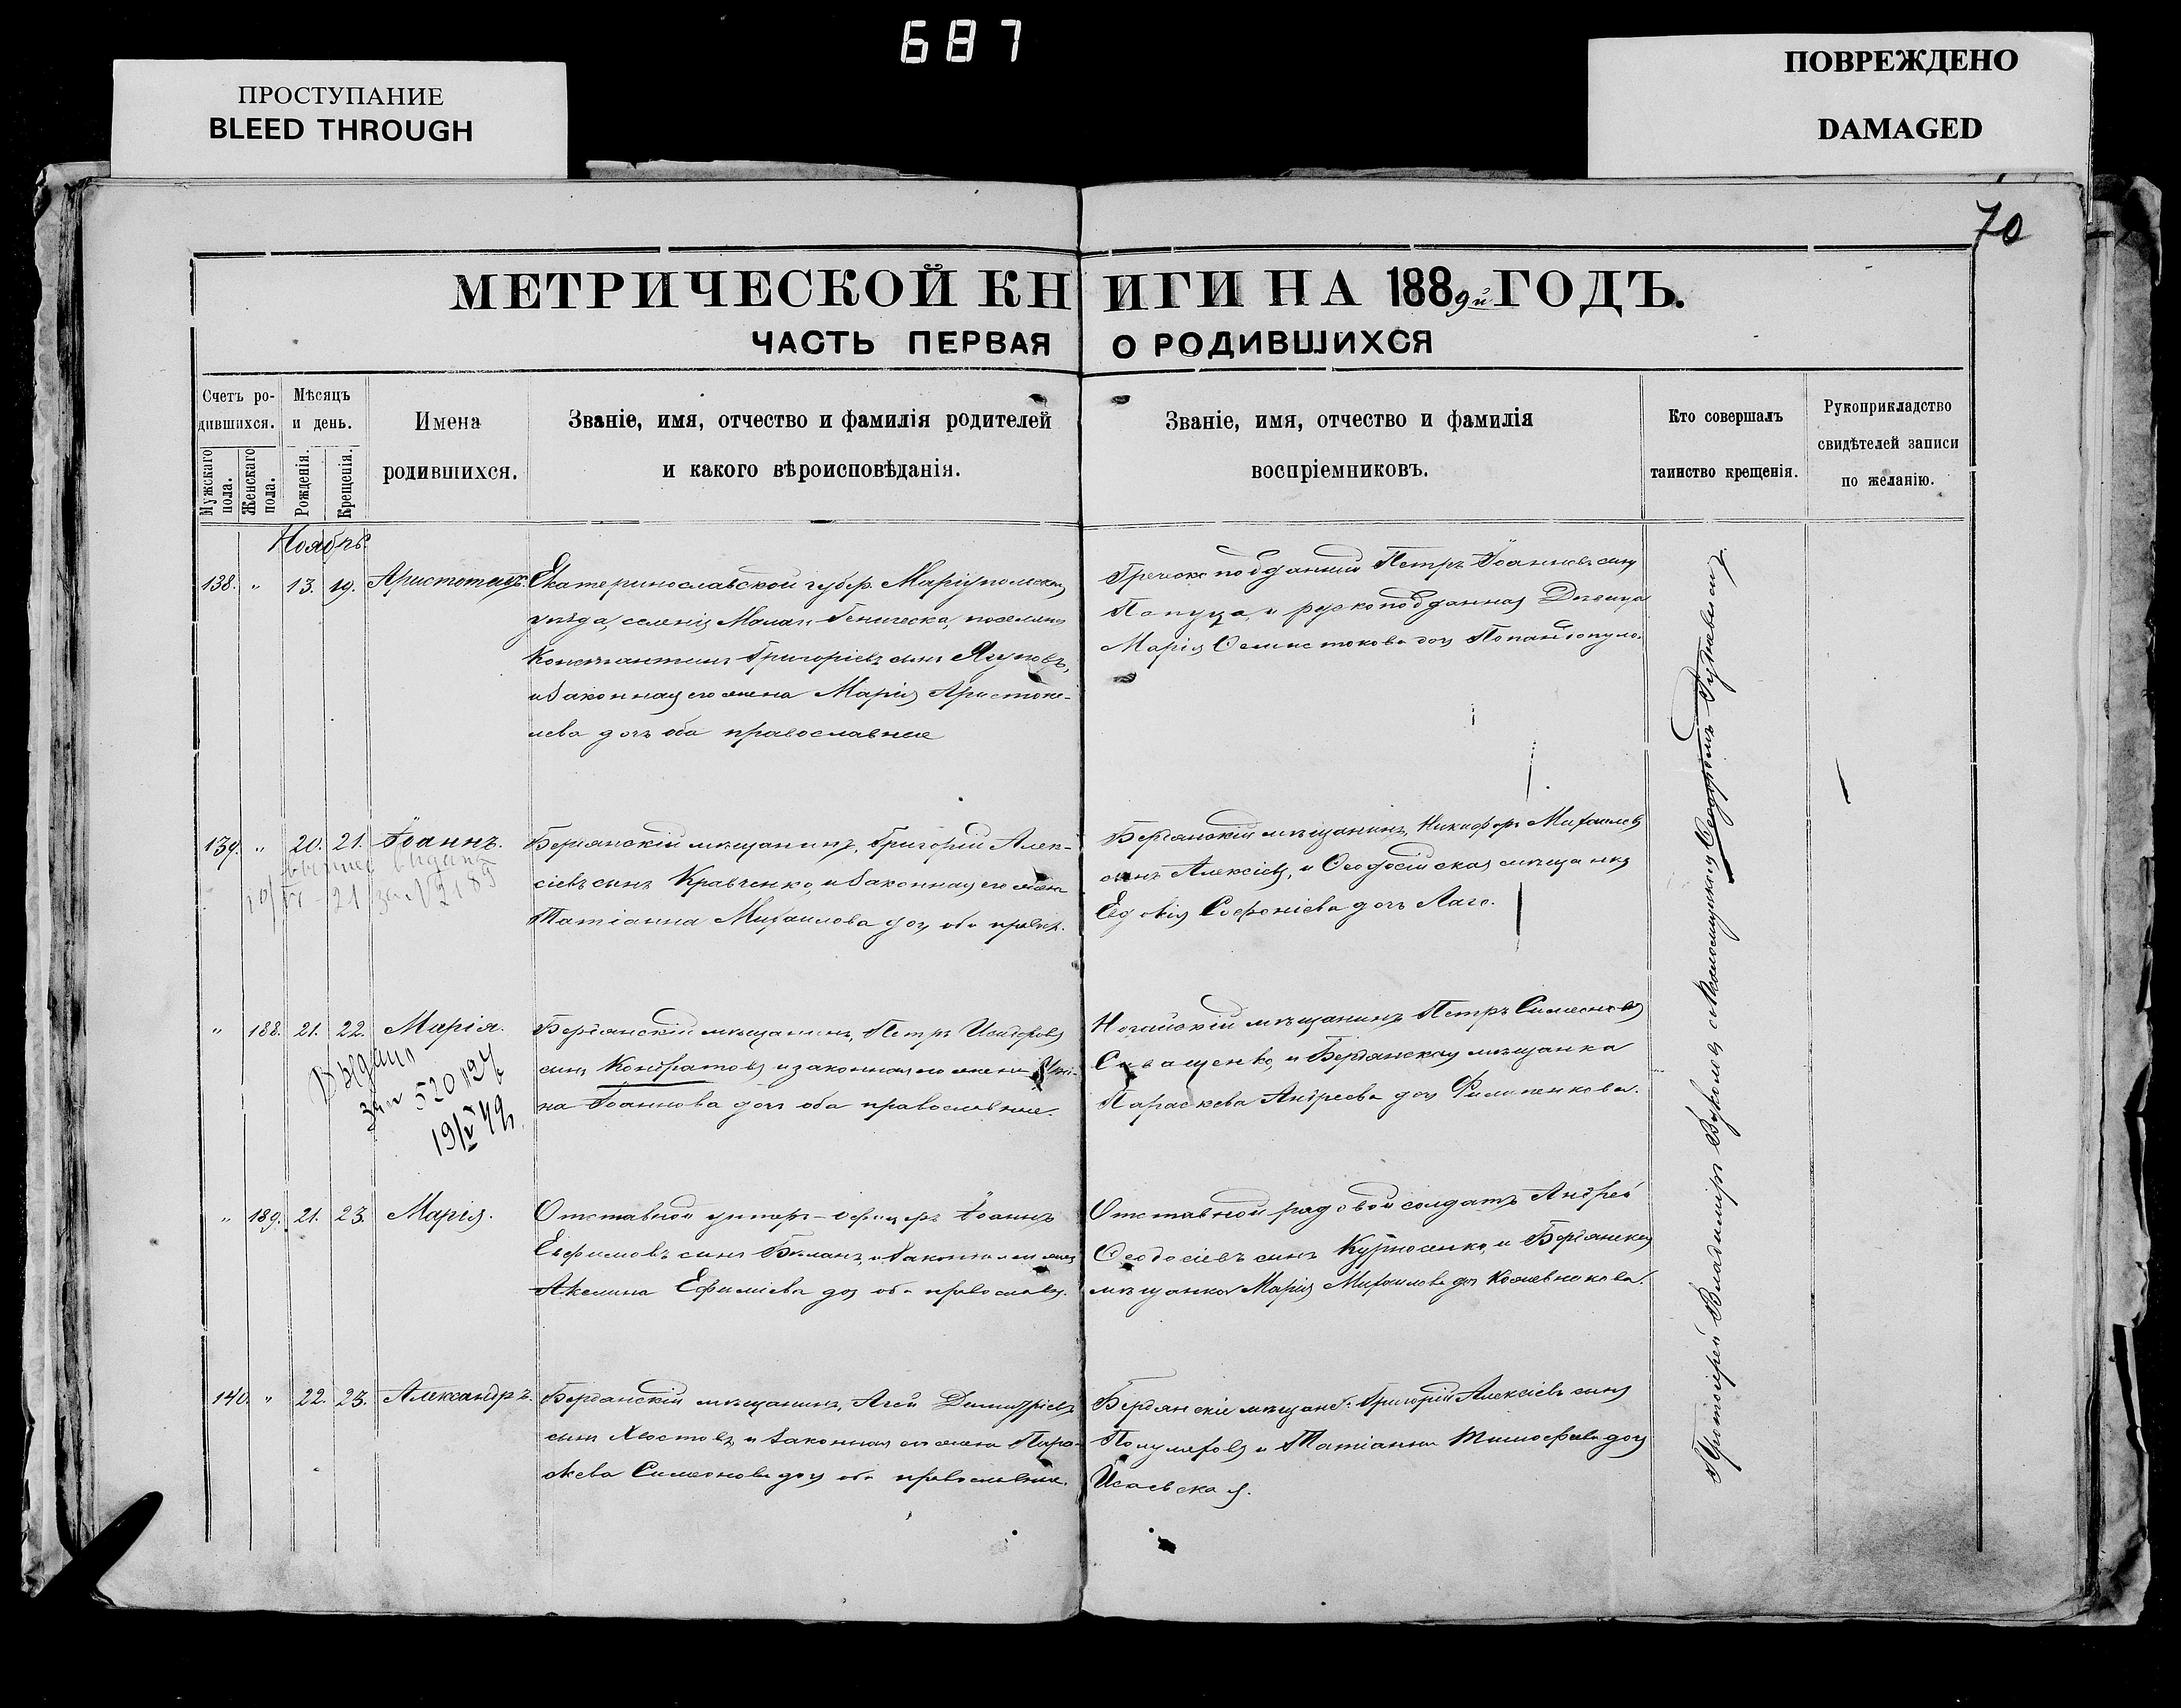 687
ПРОСТУПАНИЕ
BLEED THROUGH
ПОВРЕЖДЕНО
DAMAGED
70
МЕТРИЧЕСКОЙ КНИГИ НА 1889й ГОДЪ.
ЧАСТЬ ПЕРВАЯ О РОДИВШИХСЯ
Счетъ ро-
дившихся.
Мужскаго пола.
Женскаго пола.
Мѣсяцъ
и день.
Рожденія.
Крещенія.
Имена
родившихся.
Званіе, имя, отчество и фамилія родителей
и какого вѣроисповѣданія.
Званіе, имя, отчество и фамилія
воспріемниковъ.
Кто совершалъ
таинство крещенія.
Рукоприкладство
свидѣтелей записи
по желанію.
Ноябрь
138. " 13. 19. Аристотель.
Екатеринославской губер. Маріупольскаго
уѣзда, селенія Малаго поселянинъ
Константинъ Григоріевъ сынъ
и законная его жена Марія Аристоте-
лева дочь оба православные
Греческоподданный Петръ Іоанновъ сынъ
и рускоподданная Дѣвица
Марія дочь Попандопуло.
139. " 20. 21. Іоаннъ.
выдана
21 за № 2189
Бердянскій мѣщанинъ, Григорій Алек-
сіевъ сынъ Кравченко, и законная его жена
Татіанна Михаилова дочь, оба правосл.
Бердянскій мѣщанинъ, Никифоръ Михаиловъ
сынъ Алексіевъ, и Ѳеодосійская мѣщанка
Евдокія Софоніева дочь Лаго.
" 188. 21. 22. Марія.
Выдано
за № 520
19/V 49
Бердянскій мѣщанинъ, Петръ Исидоровъ
сынъ Кондратовъ и законная его жена
на Іоаннова дочь оба православные.
Ногайскій мѣщанинъ Петръ Симеоновъ
Сиващенко, и Бердянская мѣщанка
Параскева Андреева дочь Филипенкова.
" 189. 21. 23. Марія.
Отставной унтеръ-офицеръ Іоаннъ
Евфимовъ сынъ и законная его жена
Акелина Ефиміева дочь оба православн.
Отставной рядовой солдатъ Андрей
Ѳеодосіевъ сынъ Курносенко, и Бердянская
мѣщанка Марія Михаилова дочь Кожевникова.
140. " 22. 23. Александръ.
Бердянскій мѣщанинъ, Агей Димитріевъ
сынъ Хвостовъ, и законная его жена Пара-
скева Симеонова дочь оба православные.
Бердянскіе мѣщане: Григорій Алексіевъ сынъ
и Татіанна Тимофеева дочь
Исаевская.
Протоіерей Владиміръ съ Псаломщикомъ Ѳеодоромъ